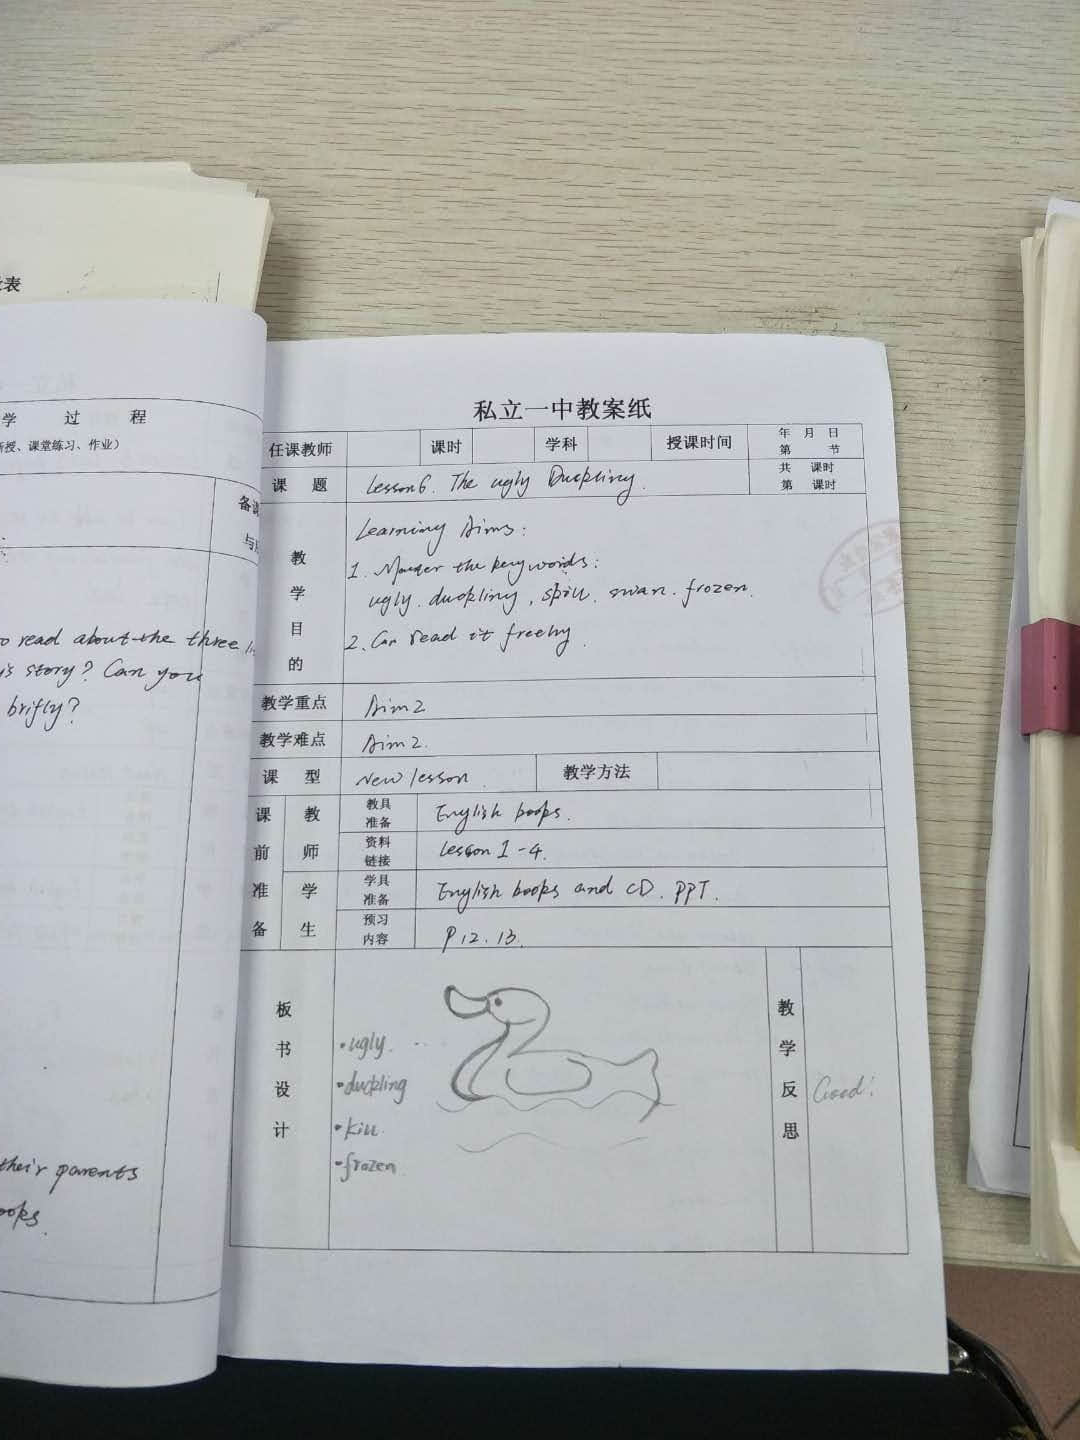 表
学 过 程
授、课堂练习、作业）
备
与
o read about the three
's story? Can you
brifly?
their parents
ooks.
私立一中教案纸
任课教师 课时 学科 授课时间 年 月 日
第 节
课 题 Lesson 6. The ugly Duckling. 共 课时
第 课时
教学目的
Learning Aims:
1. Master the key words:
ugly. duckling, spill. swan. frozen.
2. Can read it freely.
教学重点 Aim 2
教学难点 Aim 2.
课 型 New lesson. 教学方法
课前准备
教师
教具准备 English books.
资料链接 Lesson 1-4.
学生
学具准备 English books and CD. PPT.
预习内容 P 12. 13.
板书设计
•ugly.
•duckling
•kill
•frozen
教学反思
Good!